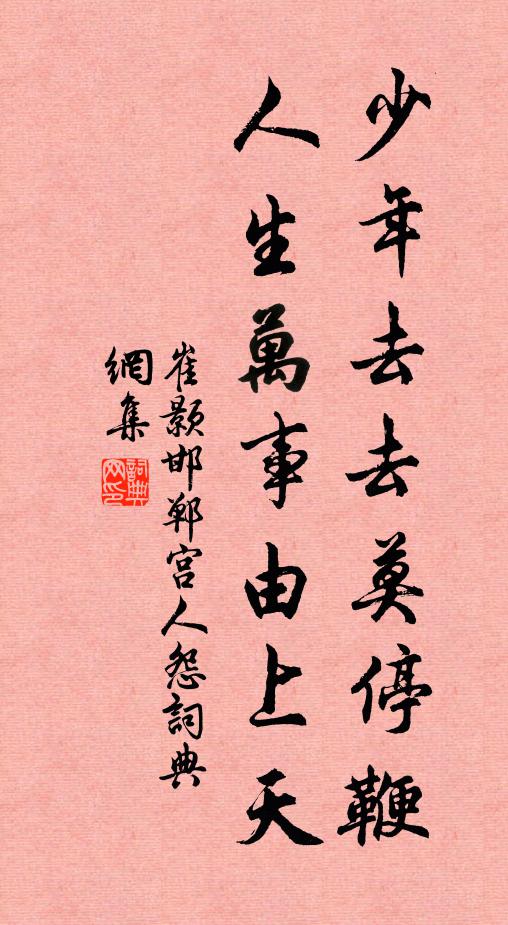 少年去去莫停鞭
人生萬事由上天
崔顥邯鄲宮人怨詞典
網集
詞典網印